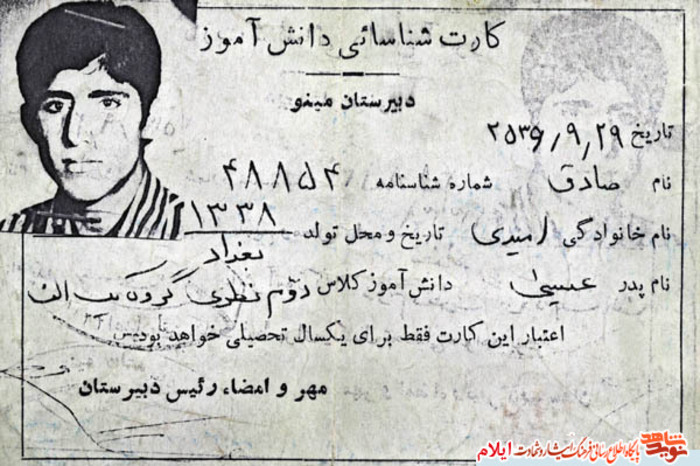 کارت شناسائی دانش آموز
دبیرستان مینو
تاریخ ۲۵۳۶/۹/۲۹
نام صادق شماره شناسنامه ۴۸۸۵۴
نام خانوادگی امیدی تاریخ و محل تولد ۱۳۳۸
بغداد
نام پدر عیسی دانش آموز کلاس دوم نظری گروه الف
اعتبار این کارت فقط برای یکسال تحصیلی خواهد بود
مهر و امضاء رئیس دبیرستان
نوید شاهد پایگاه اطلاع رسانی فرهنگ ایثار و شهادت ایلام